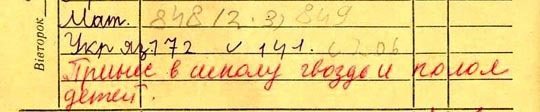 Вівторок
Мат. 848 (2.3), 849
Укр яз. 172 v 141.
Принес в школу гвозди и колол
детей.